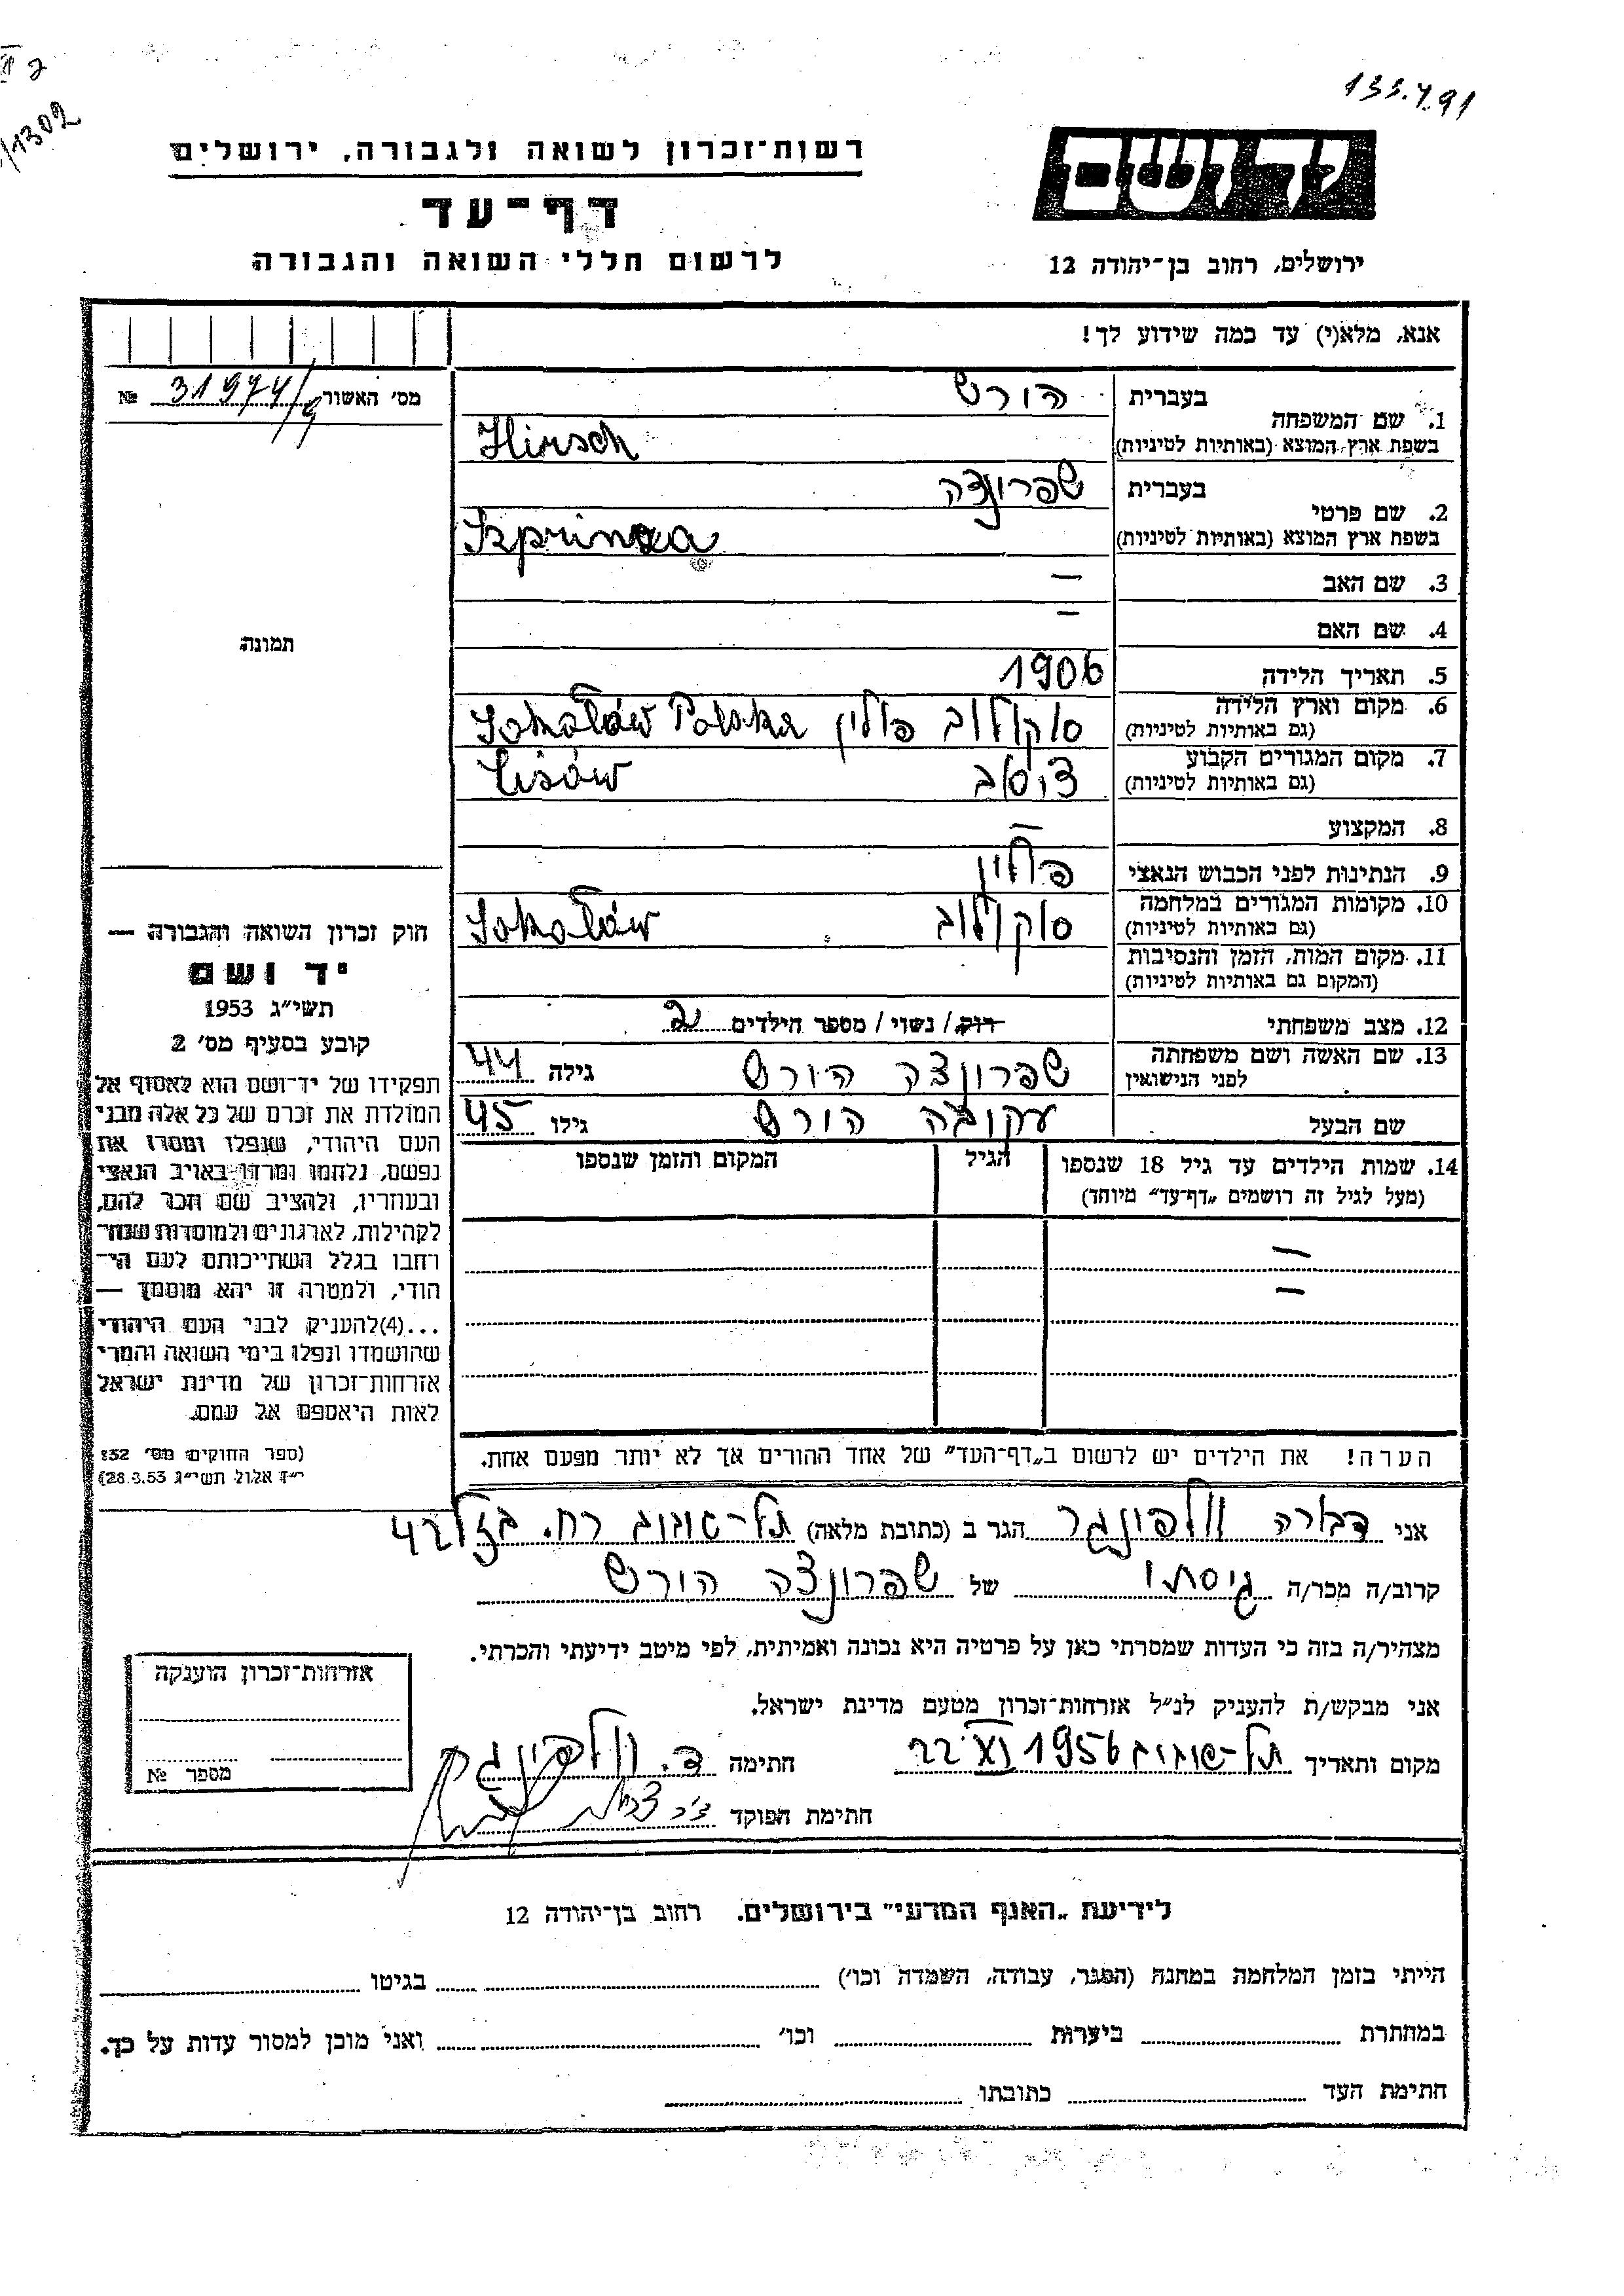 133.4.91
1302
יד ושם
רשות־זכרון לשואה ולגבורה, ירושלים
דף־עד
לרשום חללי השואה והגבורה
ירושלים, רחוב בן־יהודה 12
אנא, מלא(י) עד כמה שידוע לך!
מס׳ האשור 31974/ №
בעברית הירש
1. שם המשפחה
בשפת ארץ המוצא (באותיות לטיניות) Hirsch
בעברית שפרינצה
2. שם פרטי
בשפת ארץ המוצא (באותיות לטיניות) Szprinza
3. שם האב —
4. שם האם —
תמונה
5. תאריך הלידה 1906
6. מקום וארץ הלידה סוקולוב פולין Sokołów Polska
(גם באותיות לטיניות)
7. מקום המגורים הקבוע
(גם באותיות לטיניות)
8. המקצוע —
9. הנתינות לפני הכבוש הנאצי פולין
10. מקומות המגורים במלחמה סוקולוב Sokołów
(גם באותיות לטיניות)
11. מקום המות, הזמן והנסיבות
(המקום גם באותיות לטיניות)
12. מצב משפחתי רוק/ נשוי/ מספר הילדים 2
13. שם האשה ושם משפחתה שפרינצה הירש גילה 44
לפני הנישואין
שם הבעל עקיבה הירש גילו 45
14. שמות הילדים עד גיל 18 שנספו הגיל המקום והזמן שנספו
(מעל לגיל זה רושמים „דף־עד״ מיוחד)
—
—
הערה! את הילדים יש לרשום ב„דף־העד״ של אחד ההורים אך לא יותר מפעם אחת.
חוק זכרון השואה והגבורה —
יד ושם
תשי״ג 1953
קובע בסעיף מס׳ 2
תפקידו של יד־ושם הוא לאסוף אל
המולדת את זכרם של כל אלה מבני
העם היהודי, שנפלו ומסרו את
נפשם, נלחמו ומרדו באויב הנאצי
ובעוזריו, ולהציב שם וזכר להם,
לקהילות, לארגונים ולמוסדות שנח־
רחבו בגלל השתייכותם לעם הי־
הודי, ולמטרה זו יהא מוסמך —
...(4)להעניק לבני העם היהודי
שהושמדו ונפלו בימי השואה והמרי
אזרחות־זכרון של מדינת ישראל
לאות היאספם אל עמם.
(ספר החוקים מס׳ 132
י״ז אלול תשי״ג 28.8.53)
אני דבורה וולפינגר הגר ב (כתובת מלאה) תל-אביב רח. 42
קרוב/ה מכר/ה גיסתו של שפרינצה הירש
מצהיר/ה בזה כי העדות שמסרתי כאן על פרטיה היא נכונה ואמיתית, לפי מיטב ידיעתי והכרתי.
אני מבקש/ת להעניק לנ״ל אזרחות־זכרון מטעם מדינת ישראל.
מקום ותאריך תל-אביב 22 XI 1956 חתימה ד. וולפינגר
חתימת הפוקד
אזרחות־זכרון הוענקה
מספר №
לידיעת „האגף המדעי״ בירושלים. רחוב בן־יהודה 12
הייתי בזמן המלחמה במחנה (הסגר, עבודה, השמדה וכו׳) בגיטו
במחתרת ביערות וכו׳ ואני מוכן למסור עדות על כך.
חתימת העד כתובתו